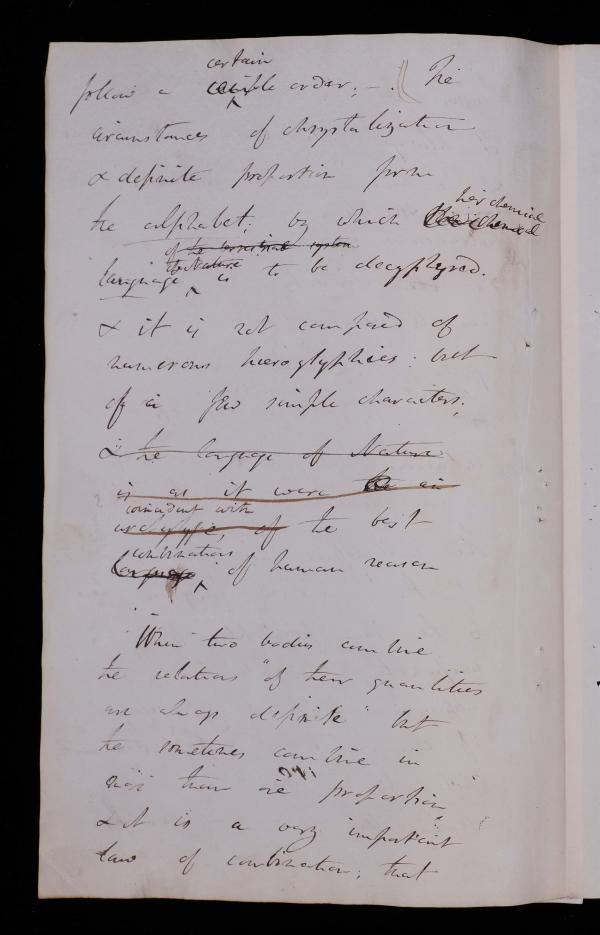 certain
follow a simple order; –. The
circumstances of chrystalization
& definite proportion form
the alphabet; by which her chemical
of the terrestrial system
language is to be decyphered.
& it is not composed of
numerous hieroglyphics: but
of a few simple characters;
& the language of Nature
is as it were the an
coincident with
archetype, of the best
combinations
language of human reason
When two bodies combine
the relations "of their quantities
are always definite" but
the sometimes combine in
more than one proportion
& it is a very important
law of combination; that